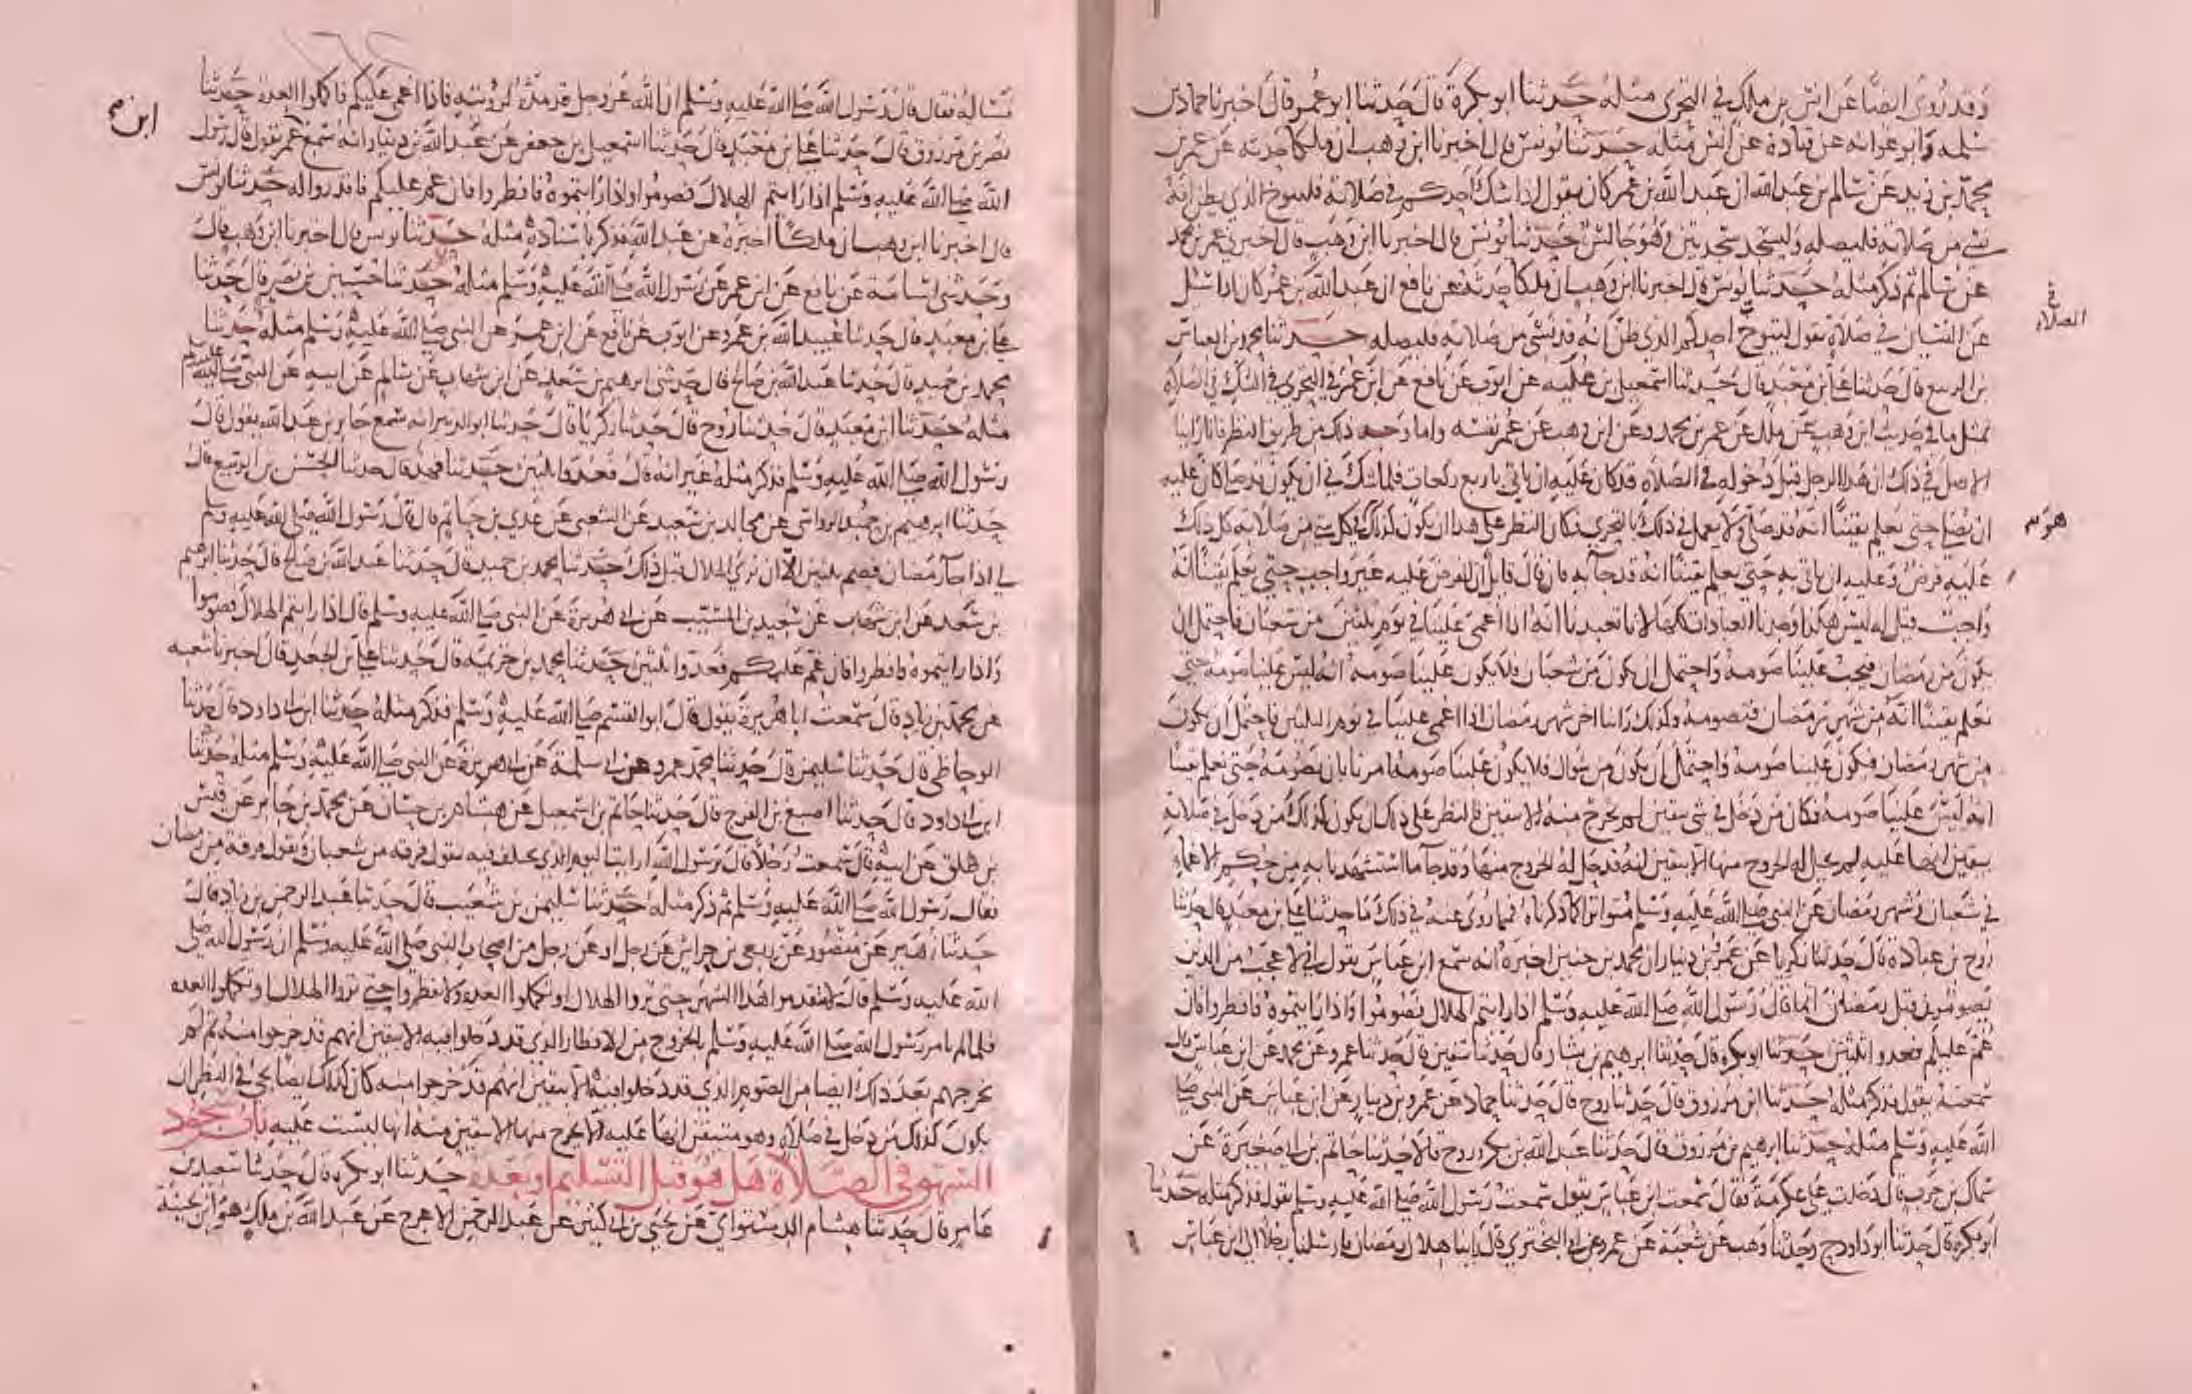 وقد روي ايضا عن انس بن مالك في التحري مثله حدثنا ابو بكرة قال حدثنا ابو عمر قال اخبرنا حماد بن
سلمه وابو عوانه عن قتادة عن انس مثله حدثنا يونس قال اخبرنا ابن وهب ان مالكا حدثه عن عمر بن
محمد بن زيد عن سالم بن عبد الله ان عبد الله بن عمر كان يقول اذا شك احدكم في صلاته فليتوخ الذي يظن انه
نسي من صلاته فليصله وليسجد سجدتين وهو جالس حدثنا يونس قال اخبرنا ابن وهب قال اخبرني عمر بن محمد
عن سالم ثم ذكر مثله حدثنا يونس قال اخبرنا ابن وهب ان مالكا حدثه عن نافع ان عبد الله بن عمر كان اذا سئل
في الصلاه
عن النسيان في صلاة يقول ليتوخ احدكم الذي ظن انه قد نسي من صلاته فليصله حدثنا محمد بن العباس
بن الربيع قال حدثنا علي بن معبد قال حدثنا اسمعيل بن علية عن ايوب عن نافع عن ابن عمر في التحري في الشك في الصلاة
بمثل ما في حديث ابن وهب عن ملك عن عمر بن محمد وعن ابن وهب عن عمر نفسه واما وجه ذلك من طريق النظر فانا راينا
الاصل في ذلك ان هذا الرجل قبل دخوله في الصلاه قد كان عليه ان ياتي باربع ركعات فلما شك في ان يكون قد صلى كان عليه
ان يصلي حتى يعلم يقينا انه قد صلى ولا يعمل في ذلك بالتحري فكان النظر على هذا ان يكون كذلك في كل شي من صلاته كل ذلك
هو
عليه فرض وعليه ان ياتي به حتى يعلم يقينا انه قد جا به فان قال قايل ان الفرض عليه غير واجب حتى يعلم يقينا انه
واجب قيل له ليس هكذا وجدنا العبادات كلها لانا تعبدنا انه اذا اغمي علينا في يوم ثلثين من شعبان فاحتمل ان
يكون من رمضان فيجب علينا صومه واحتمل ان يكون من شعبان فلا يكون علينا صومه انه ليس علينا صومه حتى
نعلم يقينا انه من شهر رمضان فنصومه وكذلك راينا اخر شهر رمضان اذا اغمي علينا في يوم الثلثين فاحتمل ان يكون
من شهر رمضان فيكون علينا صومه واحتمل ان يكون من شوال فلا يكون علينا صومه امرنا بان نصومه حتى نعلم يقينا
انه ليس علينا صومه فكان من دخل في شي بيقين لم يخرج منه الا بيقين فالنظر على ذلك ان يكون كذلك من دخل في صلاته
بيقين انها عليه لم يحل له الخروج منها الا بيقين انه قد حل له الخروج منها وقد جا ما استشهدنا به من حكم الاغماء
في شعبان وشهر رمضان عن النبي صلى الله عليه وسلم متواترا كما ذكرناه فمما روي عنه في ذلك ما حدثنا علي بن معبد قال حدثنا
روح بن عبادة قال حدثنا زكريا عن عمرو بن دينار ان محمد بن حنين اخبره انه سمع ابن عباس يقول اني لاعجب من الذين
يصومون قبل رمضان انما قال رسول الله صلى الله عليه وسلم اذا رايتم الهلال فصوموا واذا رايتموه فافطروا فان
غم عليكم فعدوا ثلثين حدثنا ابو بكرة قال حدثنا ابراهيم بن بشار قال حدثنا سفين قال حدثنا عمرو عن محمد عن ابن عباس قال
سمعته يقول فذكر مثله حدثنا ابن مرزوق قال حدثنا روح قال حدثنا حماد عن عمرو بن دينار عن ابن عباس عن النبي صلى
الله عليه وسلم مثله حدثنا ابرهيم بن مرزوق قال حدثنا عبد الله بن بكر وروح قالا حدثنا حاتم بن ابي صغيرة عن
سماك بن حرب قال دخلت على عكرمة فقال سمعت ابن عباس يقول سمعت رسول الله صلى الله عليه وسلم يقول فذكر مثله حدثنا
ابو بكرة قال حدثنا ابو داود ح وحدثنا وهب عن شعبة عن عمرو عن ابي البختري قال راينا هلال رمضان فارسلنا رجلا الى ابن عباس
نساله فقال قال رسول الله صلى الله عليه وسلم ان الله عز وجل قد مده لرويته فاذا اغمي عليكم فاكملوا العدة حدثنا
ابن
نصر بن مرزوق قال حدثنا علي بن معبد قال حدثنا اسمعيل بن جعفر عن عبد الله بن دينار انه سمع عمر يقول قال رسول
الله صلى الله عليه وسلم اذا رايتم الهلال فصوموا واذا رايتموه فافطروا فان غم عليكم فاقدروا له حدثنا يونس
قال اخبرنا ابن وهب ان ملكا اخبره عن عبد الله فذكر باسناده مثله حدثنا يونس قال اخبرنا ابن وهب قال
وحدثني اسامة عن نافع عن ابن عمر عن رسول الله صلى الله عليه وسلم مثله حدثنا حسين بن نصر قال حدثنا
علي بن معبد قال حدثنا عبيد الله بن عمرو عن ايوب عن نافع عن ابن عمر عن النبي صلى الله عليه وسلم مثله حدثنا
محمد بن حميد قال حدثنا عبد الله بن صالح قال حدثني ابرهيم بن سعد عن ابن شهاب عن سالم عن ابيه عن النبي صلى الله عليه وسلم
مثله حدثنا ابن معبد قال حدثنا روح قال حدثنا زكريا قال حدثنا ابو الزبير انه سمع جابر بن عبد الله يقول قال
رسول الله صلى الله عليه وسلم فذكر مثله غير انه قال فعدوا ثلثين حدثنا فهد قال حدثنا الحسن بن الربيع قال
حدثنا ابرهيم بن حميد الرواسي عن مجالد بن سعيد عن الشعبي عن عدي بن حاتم قال قال رسول الله صلى الله عليه وسلم
لي اذا جا رمضان فصم ثلثين الا ان ترى الهلال قبل ذلك حدثنا محمد بن حميد قال حدثنا عبد الله بن صالح قال حدثنا ابرهيم
بن سعد عن ابن شهاب عن سعيد بن المسيب عن ابي هريرة عن النبي صلى الله عليه وسلم قال اذا رايتم الهلال فصوموا
واذا رايتموه فافطروا فان غم عليكم فعدوا ثلثين حدثنا محمد بن خزيمة قال حدثنا علي بن الجعد قال اخبرنا شعبه
عن محمد بن زياد قال سمعت ابا هريرة يقول قال ابو القسم صلى الله عليه وسلم فذكر مثله حدثنا ابن ابي داود قال حدثنا
الوحاظي قال حدثنا سليمن قال حدثنا محمد بن عمرو عن ابي سلمة عن ابي هريرة عن النبي صلى الله عليه وسلم مثله حدثنا
ابن ابي داود قال حدثنا اصبغ بن الفرج قال حدثنا حاتم بن اسمعيل عن هشام بن حسان عن محمد بن جابر عن قيس
بن طلق عن ابيه قال سمعت رجلا قال يرسول الله ارايت اليوم الذي يختلف فيه يقول فرقه من شعبان ويقول فرقه من رمضان
فقال رسول الله صلى الله عليه وسلم ثم ذكر مثله حدثنا سليمن بن شعيب قال حدثنا عبد الرحمن بن زياد قال
حدثنا زهير عن منصور عن ربعي بن حراش عن رجل او عن رجل من اصحاب النبي صلى الله عليه وسلم ان رسول الله صلى
الله عليه وسلم قال لا تقدموا هذا الشهر حتى تروا الهلال او تكملوا العدة ولا تفطروا حتى تروا الهلال او تكملوا العده
فلما لم يامر رسول الله صلى الله عليه وسلم بالخروج من الافطار الذي قد دخلوا فيه الا بيقين انهم قد خرجوا منه ثم لم
يخرجهم بعد ذلك ايضا من الصوم الذي قد دخلوا فيه الا بيقين انهم قد خرجوا منه كان كذلك ايضا يجي في النظر ان
يكون كذلك من دخل في صلاة وهو متيقن انها عليه الا يخرج منها الا بيقين منه انها ليست عليه باب سجود
السهو في الصلاة هل هو قبل التسليم او بعده حدثنا ابو بكره قال حدثنا سعيد بن
عامر قال حدثنا هشام الدستواي عن يحيى بن ابي كثير عن عبد الرحمن الاعرج عن عبد الله بن ملك هو ابن بحينة